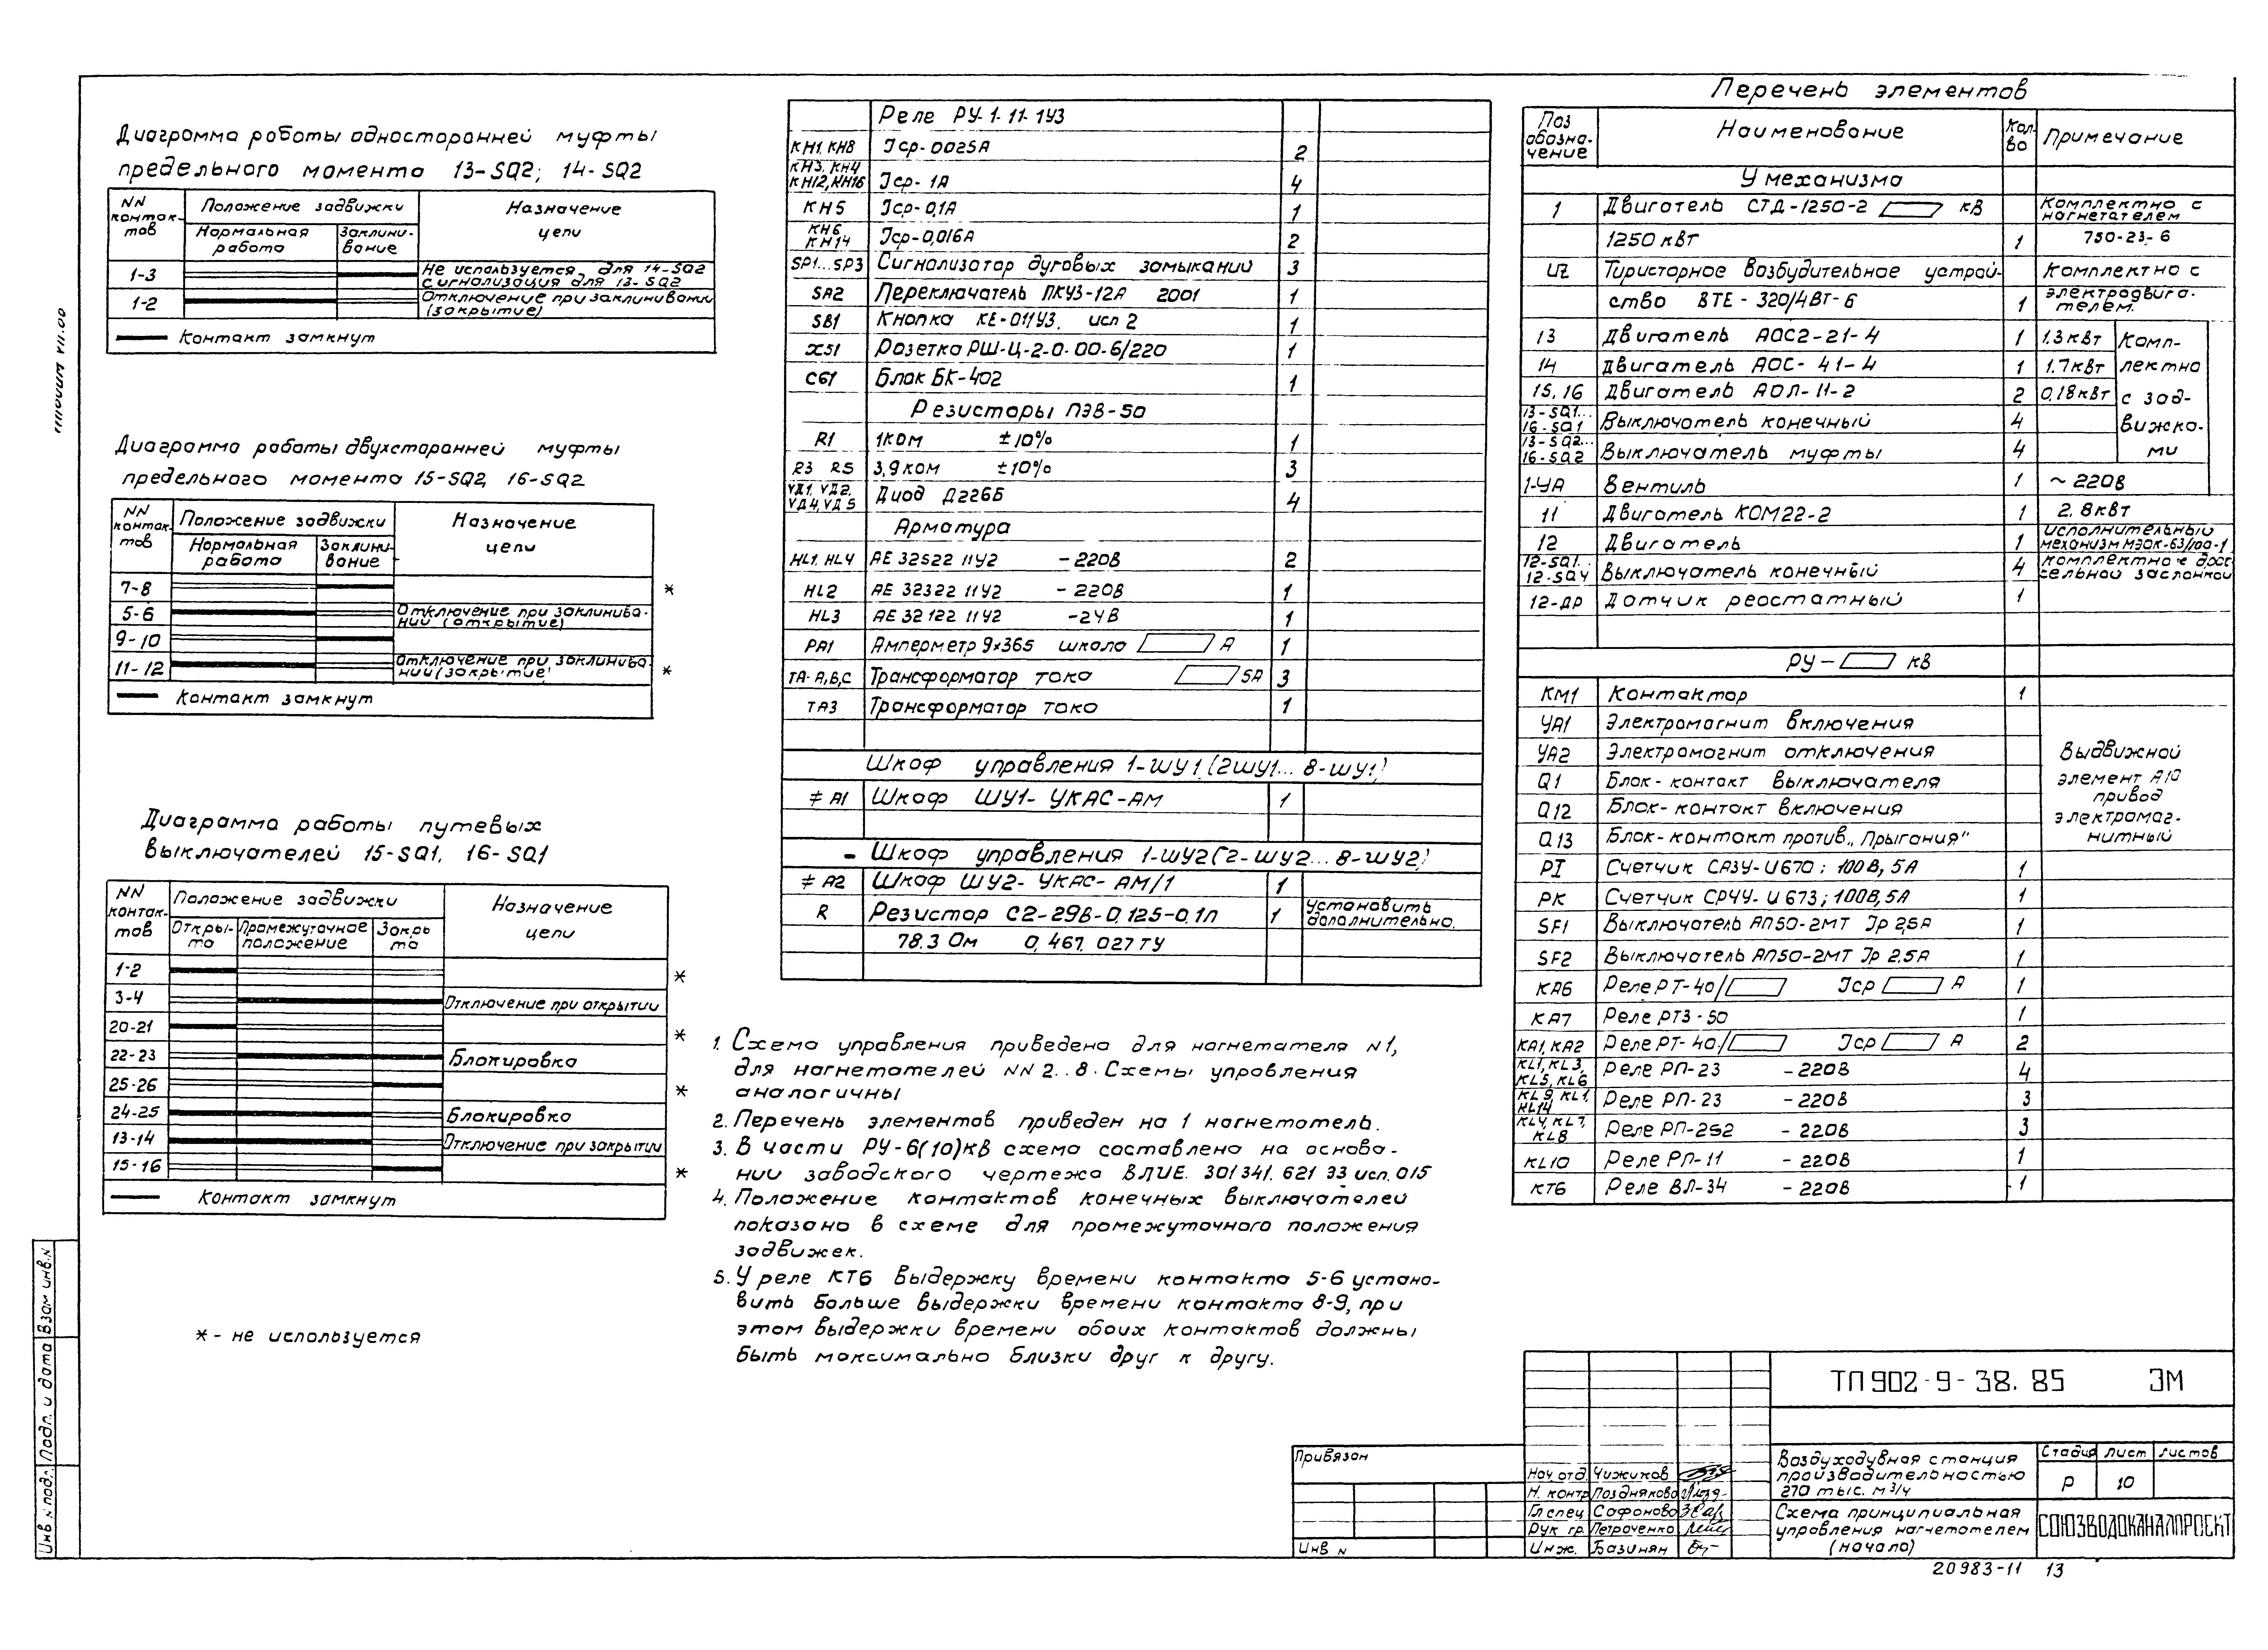 Диаграмма работы односторонней муфты
предельного момента 13-SQ2; 14-SQ2
NN контактов | Положение задвижки | Назначение цепи
Нормальная работа | Заклинивание
1-3 | Не используется для 14-SQ2 сигнализация для 13-SQ2
1-2 | Отключение при заклинивании (закрытие)
Контакт замкнут
Диаграмма работы двухсторонней муфты
предельного момента 15-SQ2, 16-SQ2
NN контактов | Положение задвижки | Назначение цепи
Нормальная работа | Заклинивание
7-8 | *
5-6 | Отключение при заклинивании (открытие)
9-10
11-12 | Отключение при заклинивании (закрытие) *
Контакт замкнут
Диаграмма работы путевых
выключателей 15-SQ1, 16-SQ1
NN контактов | Положение задвижки | Назначение цепи
Открыто | Промежуточное положение | Закрыто
1-2 | *
3-4 | Отключение при открытии
20-21 | *
22-23 | Блокировка
25-26 | *
24-25 | Блокировка
13-14 | Отключение при закрытии
15-16 | *
Контакт замкнут
* - не используется
Реле РУ-1-11-1У3
КН1, КН8 | Iср-0025А | 2
КН3, КН4 КН12, КН16 | Iср-1А | 4
КН5 | Iср-0,1А | 1
КН6 КН14 | Iср-0,016А | 2
SP1...SP3 | Сигнализатор дуговых замыканий | 3
SA2 | Переключатель ПКУ3-12А 2001 | 1
SB1 | Кнопка КЕ-011У3, исп 2 | 1
XS1 | Розетка РШ-Ц-2-0.00-6/220 | 1
CG1 | Блок БК-402 | 1
Резисторы ПЭВ-50
R1 | 1ком ±10% | 1
R3 R5 | 3,9 ком ±10% | 3
VД1, VД2, VД4, VД5 | Диод Д226Б | 4
Арматура
HL1, HL4 | АЕ 32522 11У2 -220В | 2
HL2 | АЕ 32322 11У2 -220В | 1
HL3 | АЕ 32122 11У2 -24В | 1
PA1 | Амперметр Э×365 шкала А | 1
ТА-А,В,С | Трансформатор тока 5А | 3
ТА3 | Трансформатор тока | 1
Шкаф управления 1-ШУ1 (2ШУ1... 8-ШУ1)
≠ А1 | Шкаф ШУ1-УКАС-АМ | 1
Шкаф управления 1-ШУ2 (2-ШУ2... 8-ШУ2)
≠ А2 | Шкаф ШУ2-УКАС-АМ/1 | 1
R | Резистор С2-29В-0,125-0,1п | 1 | Установить дополнительно.
78.3 Ом 0.467.027 ТУ
1. Схема управления приведена для нагнетателя N1,
для нагнетателей NN 2..8. Схемы управления
аналогичны
2. Перечень элементов приведен на 1 нагнетатель.
3. В части РУ-6(10)кВ схема составлена на основа-
нии заводского чертежа ВЛИЕ. 301341. 621 Э3 исп. 015
4. Положение контактов конечных выключателей
показано в схеме для промежуточного положения
задвижек.
5. У реле КТ6 выдержку времени контакта 5-6 устано-
вить больше выдержки времени контакта 8-9, при
этом выдержки времени обоих контактов должны
быть максимально близки друг к другу.
Перечень элементов
Поз обозначение | Наименование | Кол-во | Примечание
У механизма
1 | Двигатель СТД-1250-2 кВ | Комплектно с нагнетателем
1250 кВт | 1 | 750-23-6
UZ | Тиристорное возбудительное устрой- | Комплектно с
ство ВТЕ-320/4ВТ-6 | 1 | электродвига-телем.
13 | Двигатель АОС2-21-4 | 1 | 1.3кВт | Комплектно с задвижками
14 | Двигатель АОС-41-4 | 1 | 1.7кВт
15, 16 | Двигатель АОЛ-11-2 | 2 | 0,18кВт
13-SQ1... 16-SQ1 | Выключатель конечный | 4
13-SQ2... 16-SQ2 | Выключатель муфты | 4
1-УА | Вентиль | 1 | ~220В
11 | Двигатель КОМ22-2 | 1 | 2.8кВт
12 | Двигатель | 1 | исполнительный механизм МЭОК-63/100-1
12-SQ1... 12-SQ4 | Выключатель конечный | 4 | комплектно с дроссельной заслонкой
12-ДР | Датчик реостатный | 1
РУ- кВ
КМ1 | Контактор | 1
УА1 | Электромагнит включения | Выдвижной элемент А10 привод электромаг-нитный
УА2 | Электромагнит отключения
Q1 | Блок-контакт выключателя
Q12 | Блок-контакт включения
Q13 | Блок-контакт против „Прыгания"
PI | Счетчик САЗУ-И670; 100В, 5А | 1
PK | Счетчик СРЧУ-И673; 100В, 5А | 1
SF1 | Выключатель АП50-2МТ Iр 2,5А | 1
SF2 | Выключатель АП50-2МТ Iр 2.5А | 1
КА6 | Реле РТ-40/ Iср А | 1
КА7 | Реле РТЗ-50 | 1
КА1, КА2 | Реле РТ-40/ Iср А | 2
KL1, KL3, KL5, KL6 | Реле РП-23 -220В | 4
KL9, KL1, KL14 | Реле РП-23 -220В | 3
KL4, KL7, KL8 | Реле РП-252 -220В | 3
KL10 | Реле РП-11 -220В | 1
КТ6 | Реле ВЛ-34 -220В | 1
ТП 902-9-38.85 ЭМ
Привязан
Инв N
Нач отд. Чижиков
Н. контр Позднякова
Гл спец Сафонова
Рук гр. Петроченко
Инж. Базинян
Воздуходувная станция
производительностью
270 тыс. м³/ч
Стадия Лист Листов
Р 10
Схема принципиальная
управления нагнетателем
(начало)
СОЮЗВОДОКАНАЛПРОЕКТ
20983-11 13
Инв N подл. Подп. и дата Взам инв. N